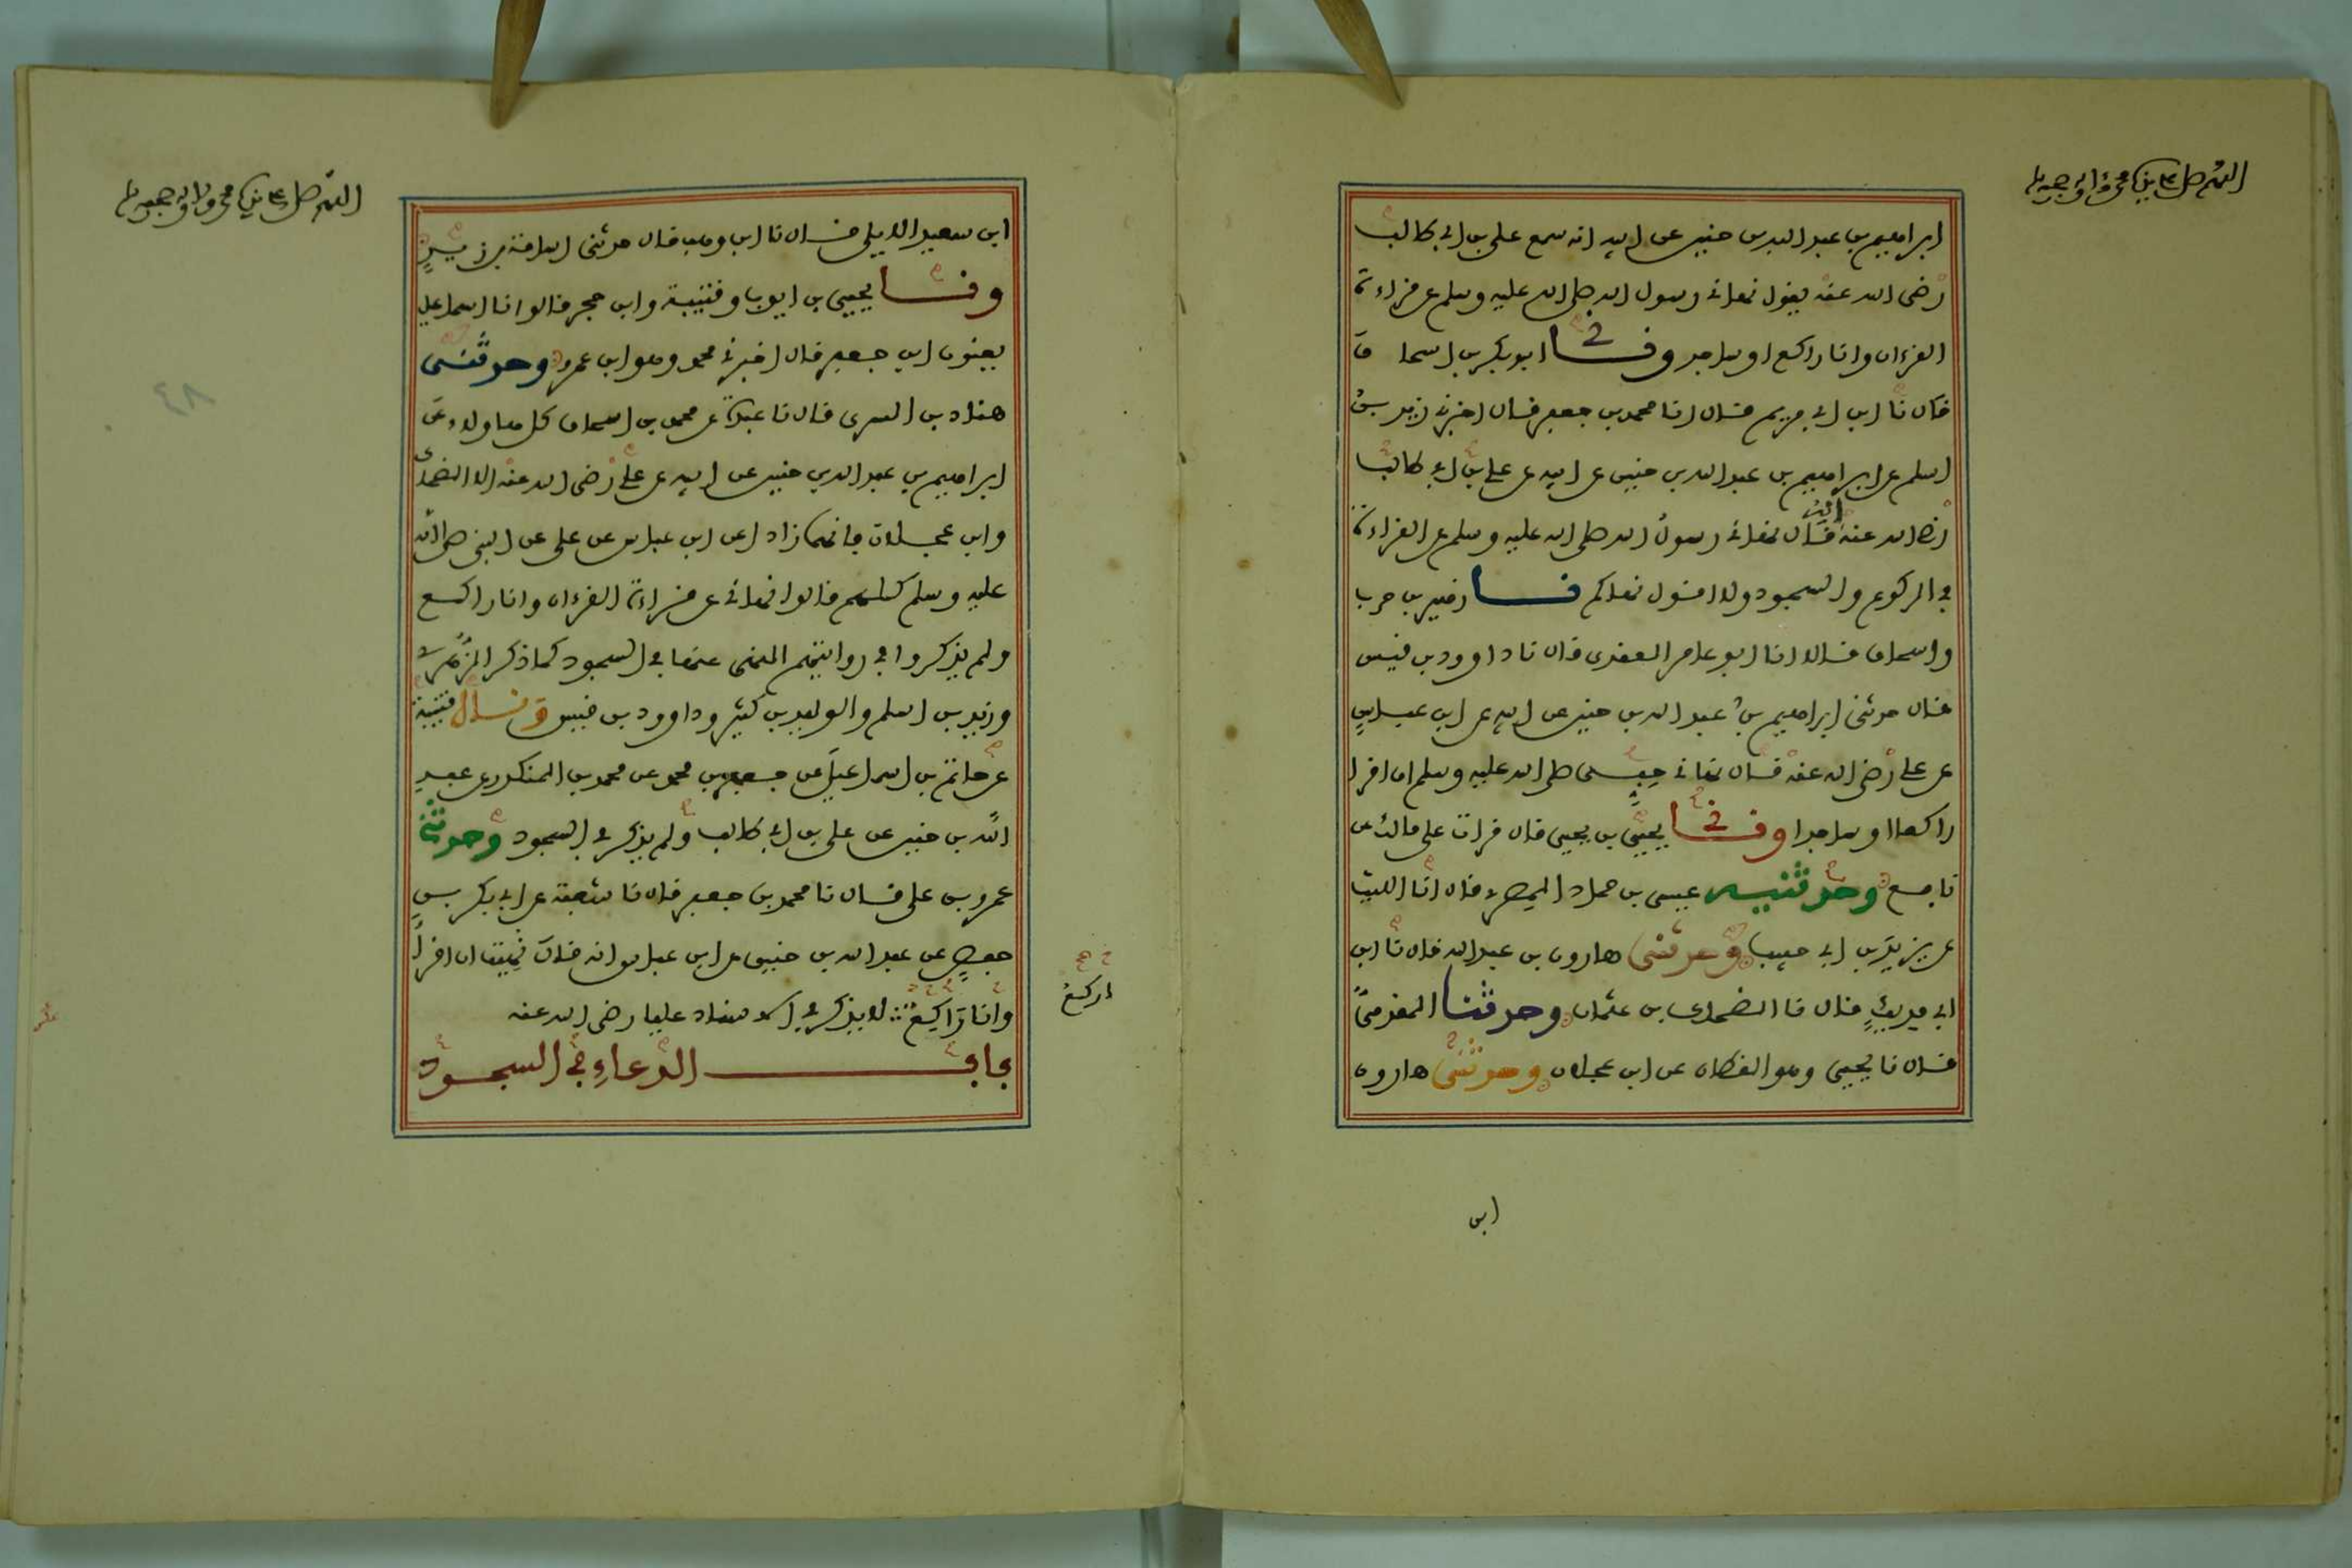 اللهم صل على نبيك محمد وآله وصحبه
ابراهيم بن عبد الله بن حنين عن ابيه انه سمع علي بن ابي طالب
رضى الله عنه يقول نهاني رسول الله صلى الله عليه وسلم عن قراءة
القرءان وانا راكع او ساجد ونا ابو بكر بن اسحاق
قال نا ابن ابي مريم قال انا محمد بن جعفر قال اخبرني زيد بن
اسلم عن ابراهيم بن عبد الله بن حنين عن ابيه عن علي بن ابي طالب
رضى الله عنه انه قال نهاني رسول الله صلى الله عليه وسلم عن القراءة
في الركوع والسجود ولا اقول نهاكم نا زهير بن حرب
واسحاق قالا انا ابو عامر العقدي قال نا داوود بن قيس
قال حدثني ابراهيم بن عبد الله بن حنين عن ابيه عن ابن عباس
عن علي رضى الله عنه قال نهاني حبي صلى الله عليه وسلم ان اقرا
راكعا او ساجدا ونا يحيى بن يحيى قال قرات على مالك عن
نافع وحدثنيه عيسى بن حماد المصري قال انا الليث
عن يزيد بن ابي حبيب وحدثني هارون بن عبد الله قال نا ابن
ابي فديك قال نا الضحاك بن عثمان وحدثنا المقدمي
قال نا يحيى وهو القطان عن ابن عجلان وحدثني هارون
ابن
اللهم صل على نبيك محمد وآله وصحبه
ابن سعيد الايلي قال نا ابن وهب قال حدثني اسامة بن زيد
ونا يحيى بن ايوب وقتيبة وابن حجر قالوا نا اسماعيل
يعنون ابن جعفر قال اخبرني محمد وهو ابن عمرو وحدثني
هناد بن السري قال نا عبدة عن محمد بن اسحاق كل هاولاء عن
ابراهيم بن عبد الله بن حنين عن ابيه عن علي رضى الله عنه الا الضحاك
وابن عجلان فانهما زادا عن ابن عباس عن علي عن النبي صلى الله
عليه وسلم كلهم قالوا نهاني عن قراءة القرءان وانا راكع
ولم يذكروا في روايتهم النهى عنها في السجود كما ذكر الزهري
وزيد بن اسلم والوليد بن كثير وداوود بن قيس وقال قتيبة
عن حاتم بن اسماعيل عن جعفر بن محمد عن محمد بن المنكدر عن عبد
الله بن حنين عن علي بن ابي طالب ولم يذكر في السجود وحدثني
عمرو بن علي قال نا محمد بن جعفر قال نا شعبة عن ابي بكر بن
جعفر عن عبد الله بن حنين عن ابن عباس انه قال نهيت ان اقرا
وانا راكع لا يذكر في الاسناد عليا رضى الله عنه
باب الدعاء في السجود
اركع
٤٨